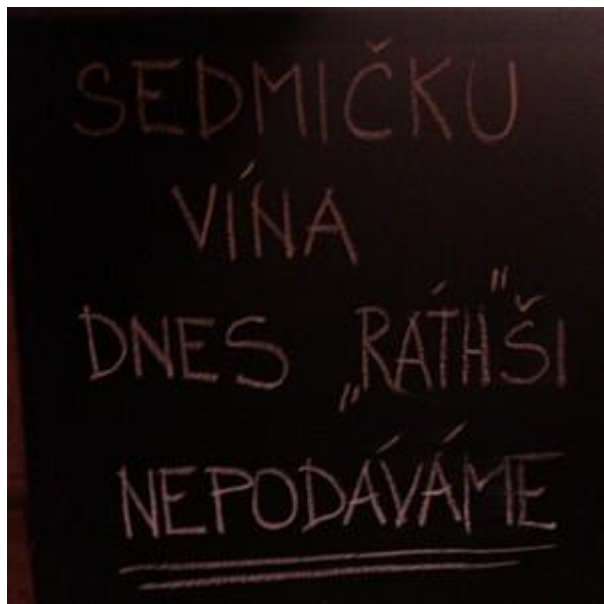 SEDMIČKU
VÍNA
DNES „RÁTH“ŠI
NEPODÁVÁME